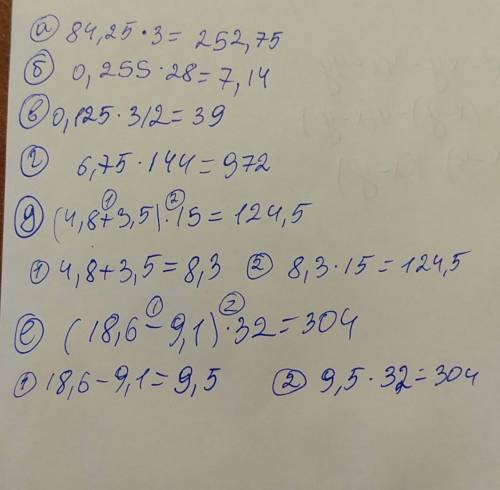 а) 84,25·3=252,75
б) 0,255·28=7,14
в) 0,125·312=39
г) 6,75·144=972
д) (4,8+3,5)·15=124,5
1) 4,8+3,5=8,3 2) 8,3·15=124,5
е) (18,6-9,1)·32=304
1) 18,6-9,1=9,5 2) 9,5·32=304